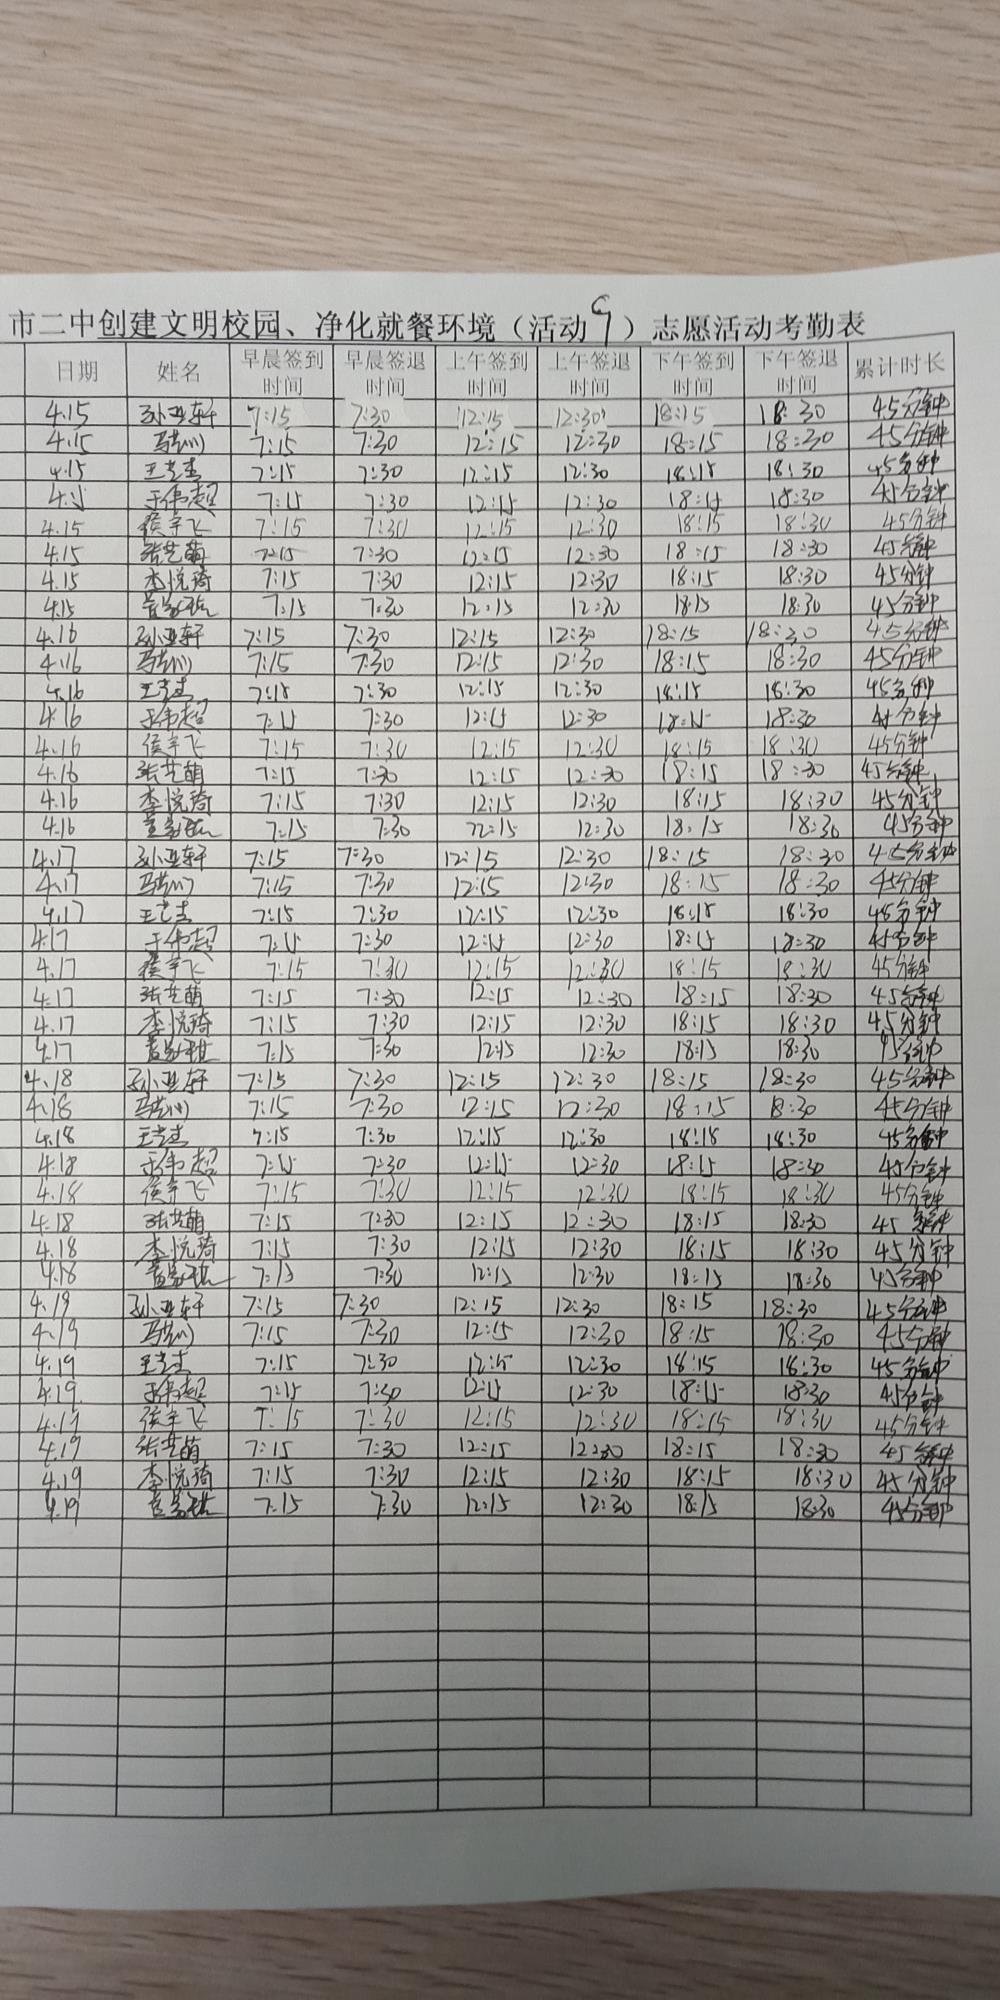 市二中创建文明校园、净化就餐环境（活动9）志愿活动考勤表
日期 姓名 早晨签到时间 早晨签退时间 上午签到时间 上午签退时间 下午签到时间 下午签退时间 累计时长
4.15 孙亚轩 7:15 7:30 12:15 12:30 18:15 18:30 45分钟
4.15 7:15 7:30 12:15 12:30 18:15 18:30 45分钟
4.15 7:15 7:30 12:15 12:30 18:15 18:30 45分钟
4.15 于伟超 7:15 7:30 12:15 12:30 18:15 18:30 45分钟
4.15 侯宇飞 7:15 7:30 12:15 12:30 18:15 18:30 45分钟
4.15 张芝萌 7:15 7:30 12:15 12:30 18:15 18:30 45分钟
4.15 李悦琦 7:15 7:30 12:15 12:30 18:15 18:30 45分钟
4.15 7:15 7:30 12:15 12:30 18:15 18:30 45分钟
4.16 孙亚轩 7:15 7:30 12:15 12:30 18:15 18:30 45分钟
4.16 7:15 7:30 12:15 12:30 18:15 18:30 45分钟
4.16 7:15 7:30 12:15 12:30 18:15 18:30 45分钟
4.16 于伟超 7:15 7:30 12:15 12:30 18:15 18:30 45分钟
4.16 侯宇飞 7:15 7:30 12:15 12:30 18:15 18:30 45分钟
4.16 张芝萌 7:15 7:30 12:15 12:30 18:15 18:30 45分钟
4.16 李悦琦 7:15 7:30 12:15 12:30 18:15 18:30 45分钟
4.16 7:15 7:30 12:15 12:30 18:15 18:30 45分钟
4.17 孙亚轩 7:15 7:30 12:15 12:30 18:15 18:30 45分钟
4.17 7:15 7:30 12:15 12:30 18:15 18:30 45分钟
4.17 7:15 7:30 12:15 12:30 18:15 18:30 45分钟
4.17 于伟超 7:15 7:30 12:15 12:30 18:15 18:30 45分钟
4.17 侯宇飞 7:15 7:30 12:15 12:30 18:15 18:30 45分钟
4.17 张芝萌 7:15 7:30 12:15 12:30 18:15 18:30 45分钟
4.17 李悦琦 7:15 7:30 12:15 12:30 18:15 18:30 45分钟
4.17 7:15 7:30 12:15 12:30 18:15 18:30 45分钟
4.18 孙亚轩 7:15 7:30 12:15 12:30 18:15 18:30 45分钟
4.18 7:15 7:30 12:15 12:30 18:15 18:30 45分钟
4.18 7:15 7:30 12:15 12:30 18:18 18:30 45分钟
4.18 于伟超 7:15 7:30 12:15 12:30 18:15 18:30 45分钟
4.18 侯宇飞 7:15 7:30 12:15 12:30 18:15 18:30 45分钟
4.18 张芝萌 7:15 7:30 12:15 12:30 18:15 18:30 45分钟
4.18 李悦琦 7:15 7:30 12:15 12:30 18:15 18:30 45分钟
4.18 7:15 7:30 12:15 12:30 18:15 18:30 45分钟
4.19 孙亚轩 7:15 7:30 12:15 12:30 18:15 18:30 45分钟
4.19 7:15 7:30 12:15 12:30 18:15 18:30 45分钟
4.19 7:15 7:30 12:15 12:30 18:15 18:30 45分钟
4.19 于伟超 7:15 7:30 12:15 12:30 18:15 18:30 45分钟
4.19 侯宇飞 7:15 7:30 12:15 12:30 18:15 18:30 45分钟
4.19 张芝萌 7:15 7:30 12:15 12:30 18:15 18:30 45分钟
4.19 李悦琦 7:15 7:30 12:15 12:30 18:15 18:30 45分钟
4.19 7:15 7:30 12:15 12:30 18:15 18:30 45分钟